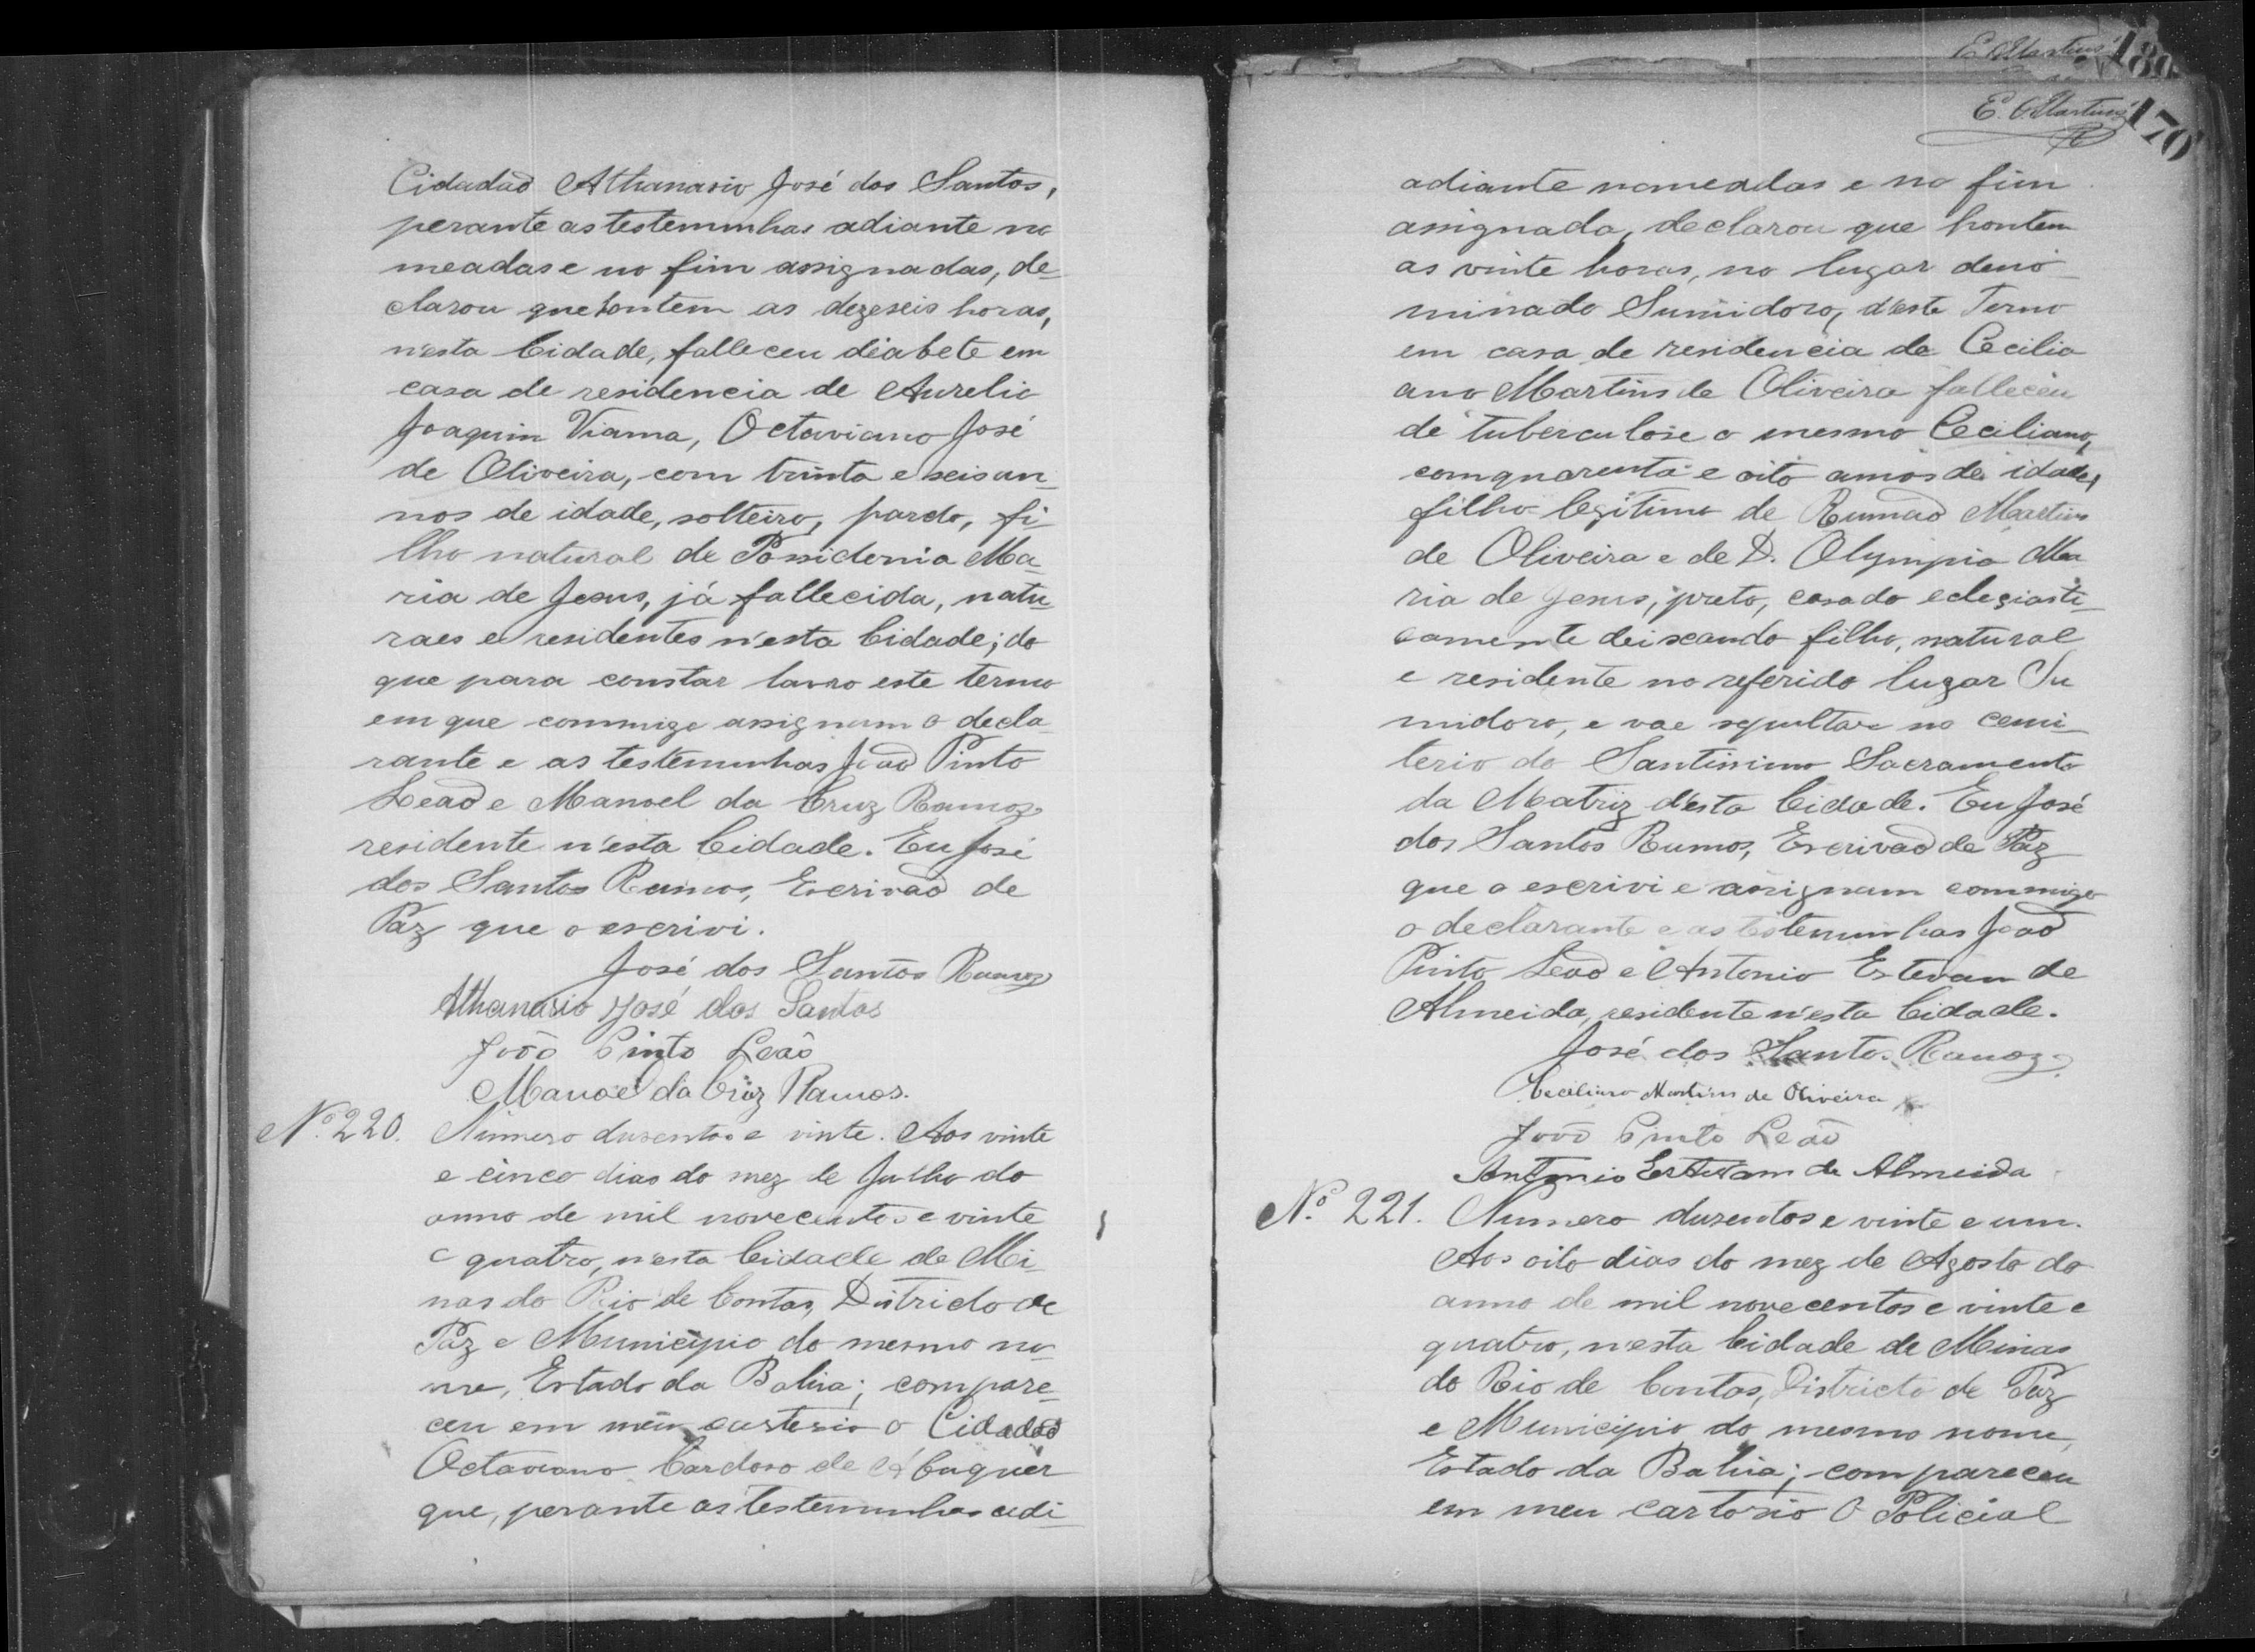 Cidadaõ Athanasio José dos Santos,
perante as testemunhas adiante no
meadas e no fim assignadas, de
clarou que hontem as dezeseis horas,
n'esta Cidade, falleceu diabete em
casa de residencia de Aurelio
Joaquim Vianna, Octaviano José
de Oliveira, com trinta e seis an
nos de idade, solteiro, pardo, fi
lho natural de Possidonia Ma
ria de Jesus, já fallecida, natu
raes e residentes n'esta Cidade; do
que para constar lavro este termo
em que commigo assignam o decla
rante e as testemunhas João Pinto
Leaõ e Manoel da Cruz Ramos
residente n'esta Cidade. Eu José
dos Santos Ramos, Escrivaõ de
Paz que o escrivi.
José dos Santos Ramos
Athanasio José dos Santos
João Pinto Leão
Manoel da Cruz Ramos.
Nº 220. Numero dusentos e vinte. Aos vinte
e cinco dias do mez de Julho do
anno de mil novecentos e vinte
e quatro, n'esta Cidade de Mi
nas do Rio de Contas, Districto de
Paz e Municipio do mesmo no
me, Estado da Bahia; compare
ceu em meu cartorio o Cidadaõ
Octaviano Cardoso de
que, perante as testemunhas adi
E. Martins 180
E. Martins 170
adiante nomeadas e no fim
assignada, declarou que hontem
as vinte horas, no lugar deno
minado Sumidoro, d'este Termo
em casa de residencia de Cecilia
ano Martins de Oliveira falleceu
de tuberculose o mesmo Ceciliano,
com quarenta e oito annos de idade,
filho legitimo de Rumaõ Martins
de Oliveira e de D. Olympia Ma
ria de Jesus, preto, casado eclesiasti
camente deixando filho, natural
e residente no referido lugar Su
midoro, e vae sepultar no cemi
terio do Santissimo Sacramento
da Matriz d'esta Cidade. Eu José
dos Santos Ramos, Escrivaõ de Paz
que o escrivi e assignam commigo
o declarante e as testemunhas Joaõ
Pinto Leaõ e Antonio Estevam de
Almeida, residente n'esta Cidade.
José dos Santos Ramos
Ceciliano Martins de Oliveira
João Pinto Leão
Antonio Estevam de Almeida
Nº 221. Numero dusentos e vinte e um.
Aos oito dias do mez de Agosto do
anno de mil novecentos e vinte e
quatro, n'esta Cidade de Minas
do Rio de Contas, Districto de Paz
e Municipio do mesmo nome,
Estado da Bahia; compareceu
em meu cartorio o Policial